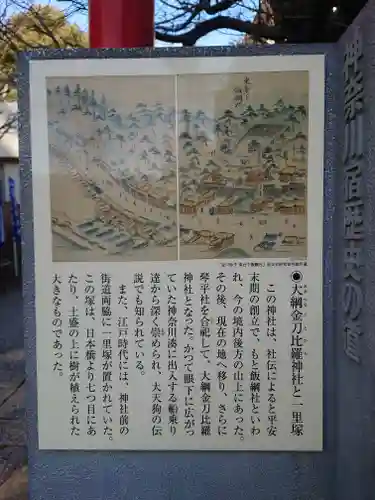 神奈川宿歴史の道
●大綱金刀比羅神社と一里塚
この神社は、社伝によると平安
末期の創立で、もと飯綱社といわ
れ、今の境内後方の山上にあった。
その後、現在の地へ移り、さらに
琴平社を合祀して、大綱金刀比羅
神社となった。かつて眼下に広がっ
ていた神奈川湊に出入する船乗り
達から深く崇められ、大天狗の伝
説でも知られている。
また、江戸時代には、神社前の
街道両脇に一里塚が置かれていた。
この塚は、日本橋より七つ目にあ
たり、土盛の上に樹が植えられた
大きなものであった。